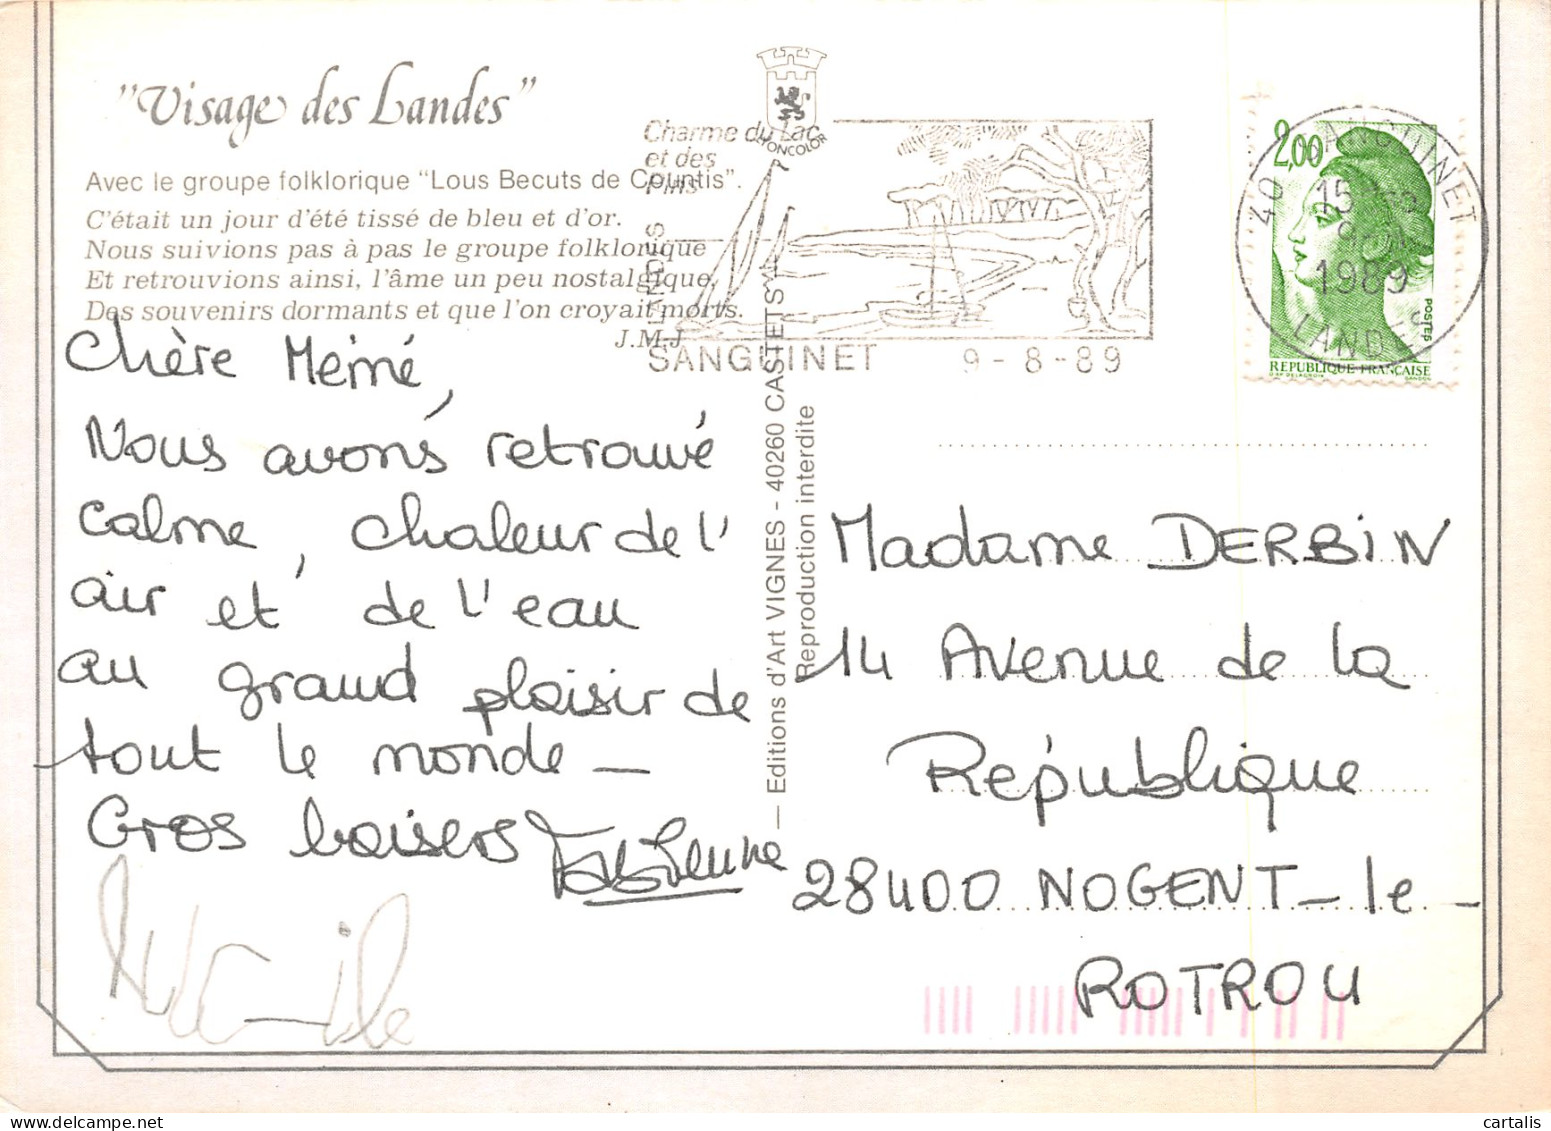 "Visage des Landes"
Avec le groupe folklorique "Lous Becuts de Countis".
C'était un jour d'été tissé de bleu et d'or.
Nous suivions pas à pas le groupe folklorique
Et retrouvions ainsi, l'âme un peu nostalgique,
Des souvenirs dormants et que l'on croyait morts.
J.M.J.
Chère Mémé,
Nous avons retrouvé
calme, chaleur de l'
air et de l'eau
au grand plaisir de
tout le monde _
Gros baisers Fabienne
LYONCOLOR
Charme du Lac
et des
Pins
LANDES
SANGUINET 9-8-89
— Editions d'Art VIGNES - 40260 CASTETS
Reproduction interdite
2,00
POSTES
REPUBLIQUE FRANÇAISE
40 SANGUINET
15H
9-8
1989
LANDES
Madame DERBIN
14 Avenue de la
République
28400 NOGENT-le-
ROTROU
cartalis